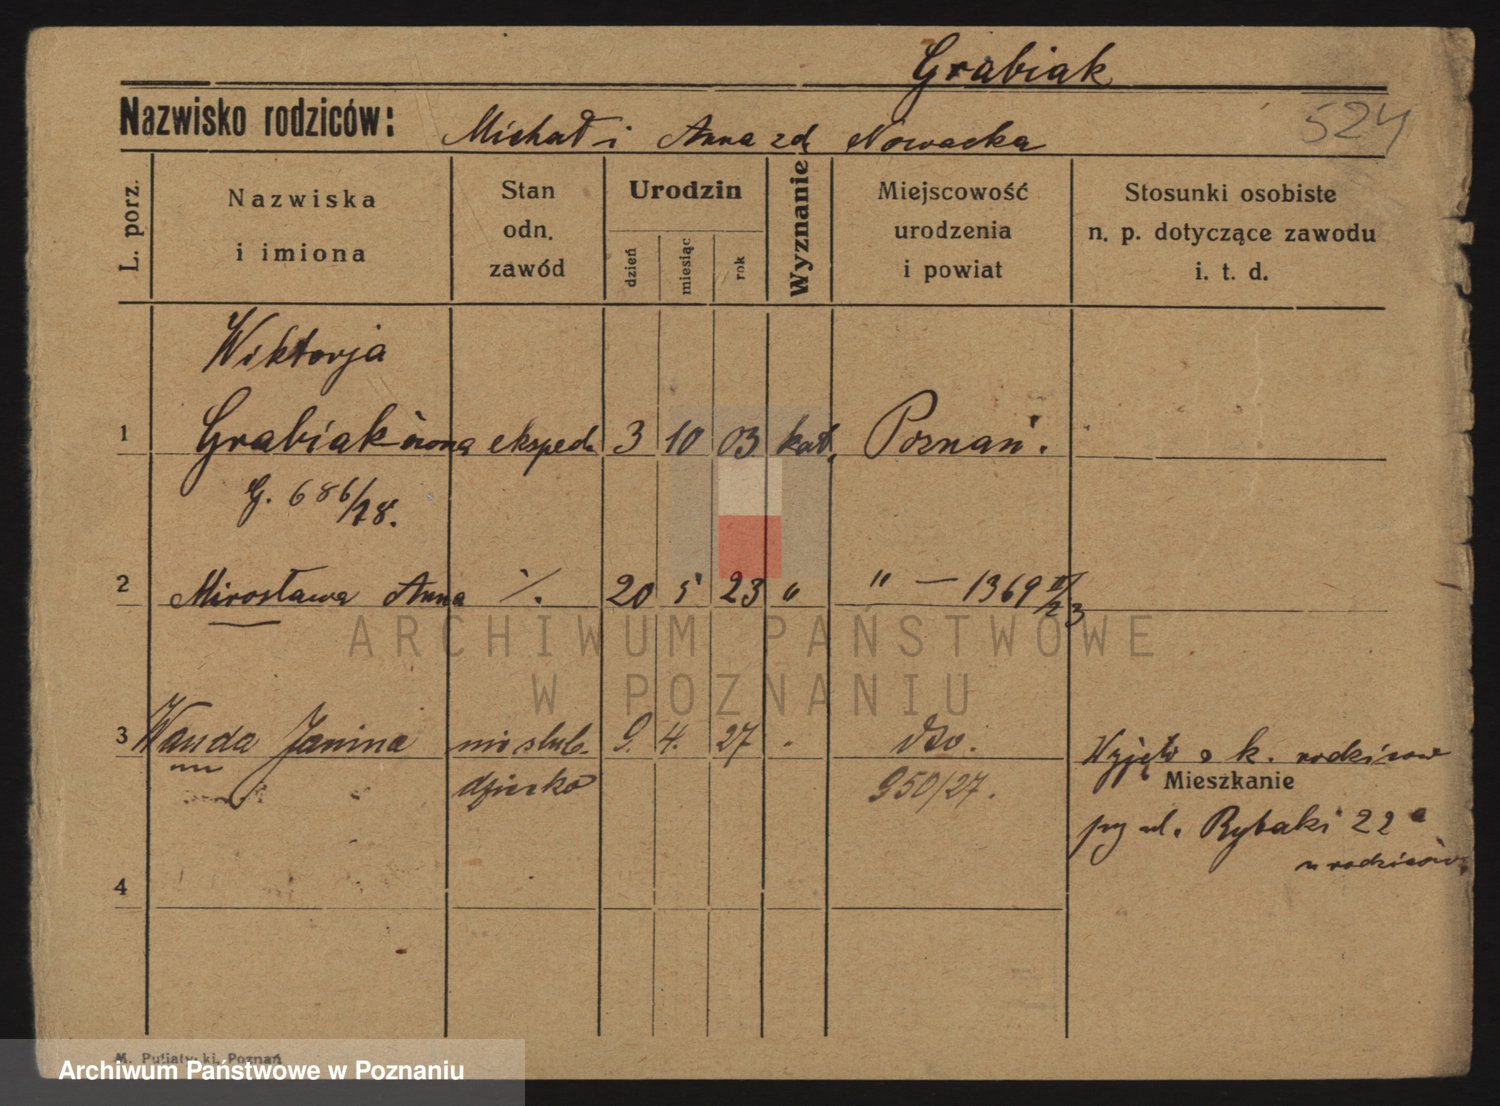 Grabiak
Nazwisko rodziców:
Michał i Anna zd Nowacka
524
L. porz.
Nazwiska
i imiona
Stan
odn.
zawód
Urodzin
dzień
miesiąc
rok
Wyznanie
Miejscowość
urodzenia
i powiat
Stosunki osobiste
n. p. dotyczące zawodu
i. t. d.
Wiktorja
1 Grabiak żona eksped. 3 10 03 kat. Poznań.
G. 686/28.
2 Mirosława Anna ./. 20 5 23 " " — 1369 II/23
ARCHIWUM PAŃSTWOWE
W POZNANIU
3 Wanda Janina nieślub. 9. 4. 27 " dto.
dziecko 950/27.
Wyjęto z k. rodziców
Mieszkanie
przy ul. Rybaki 22a
u rodziców
4
M. Putiatycki, Poznań
Archiwum Państwowe w Poznaniu